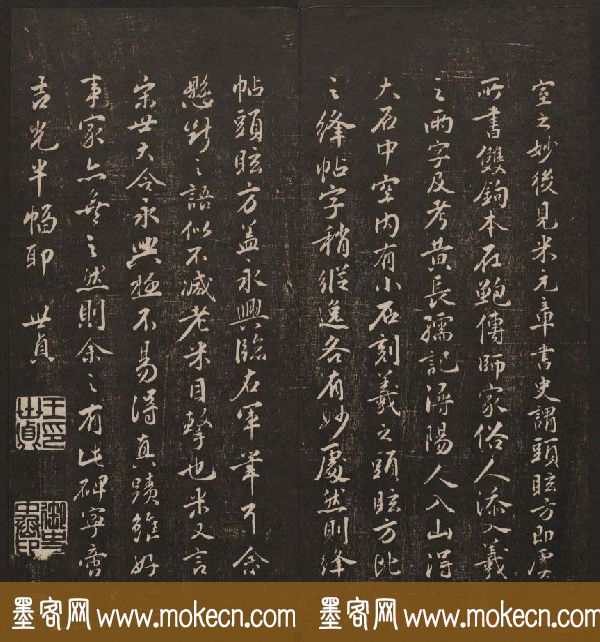 室之妙後見米元章書史謂頭眩方即虞
所書雙鉤本在鮑傳師家俗人添入羲
之兩字及考黃長孺記潯陽人入山得
大石中空內有小石刻羲之頭眩方比
之絳帖字稍縱逸各有妙處然則絳
帖頭眩方蓋永興臨右軍筆耳
懸對之語似不減老米目擊也米又言
宋世大令永興極不易得真蹟雖好
事家亦無之然則余之有此碑寧啻
吉光半幅耶 世貞
墨客网 www.mokecn.com 墨客网 www.mokecn.com